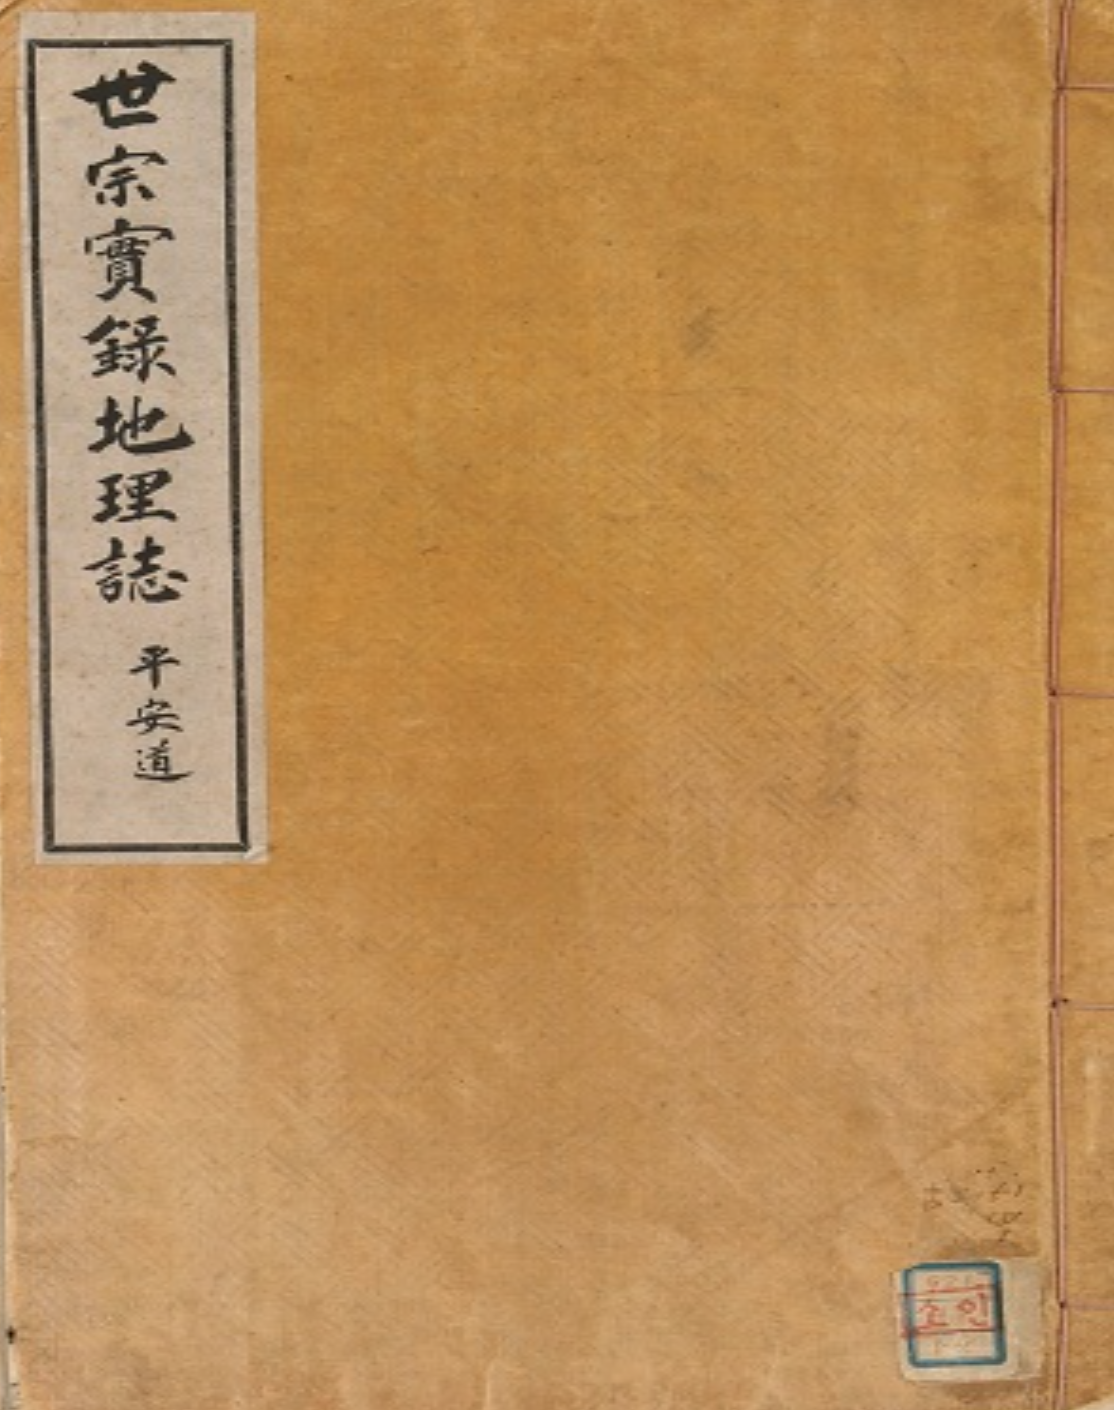 世宗實錄地理誌
平安道
소인